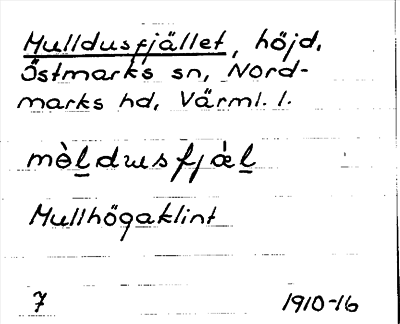 Mulldusfjället, höjd,
Östmarks sn, Nord-
marks hd, Värml. l.
mèḻdusfjǽḻ
Mullhögaklint
7 1910-16